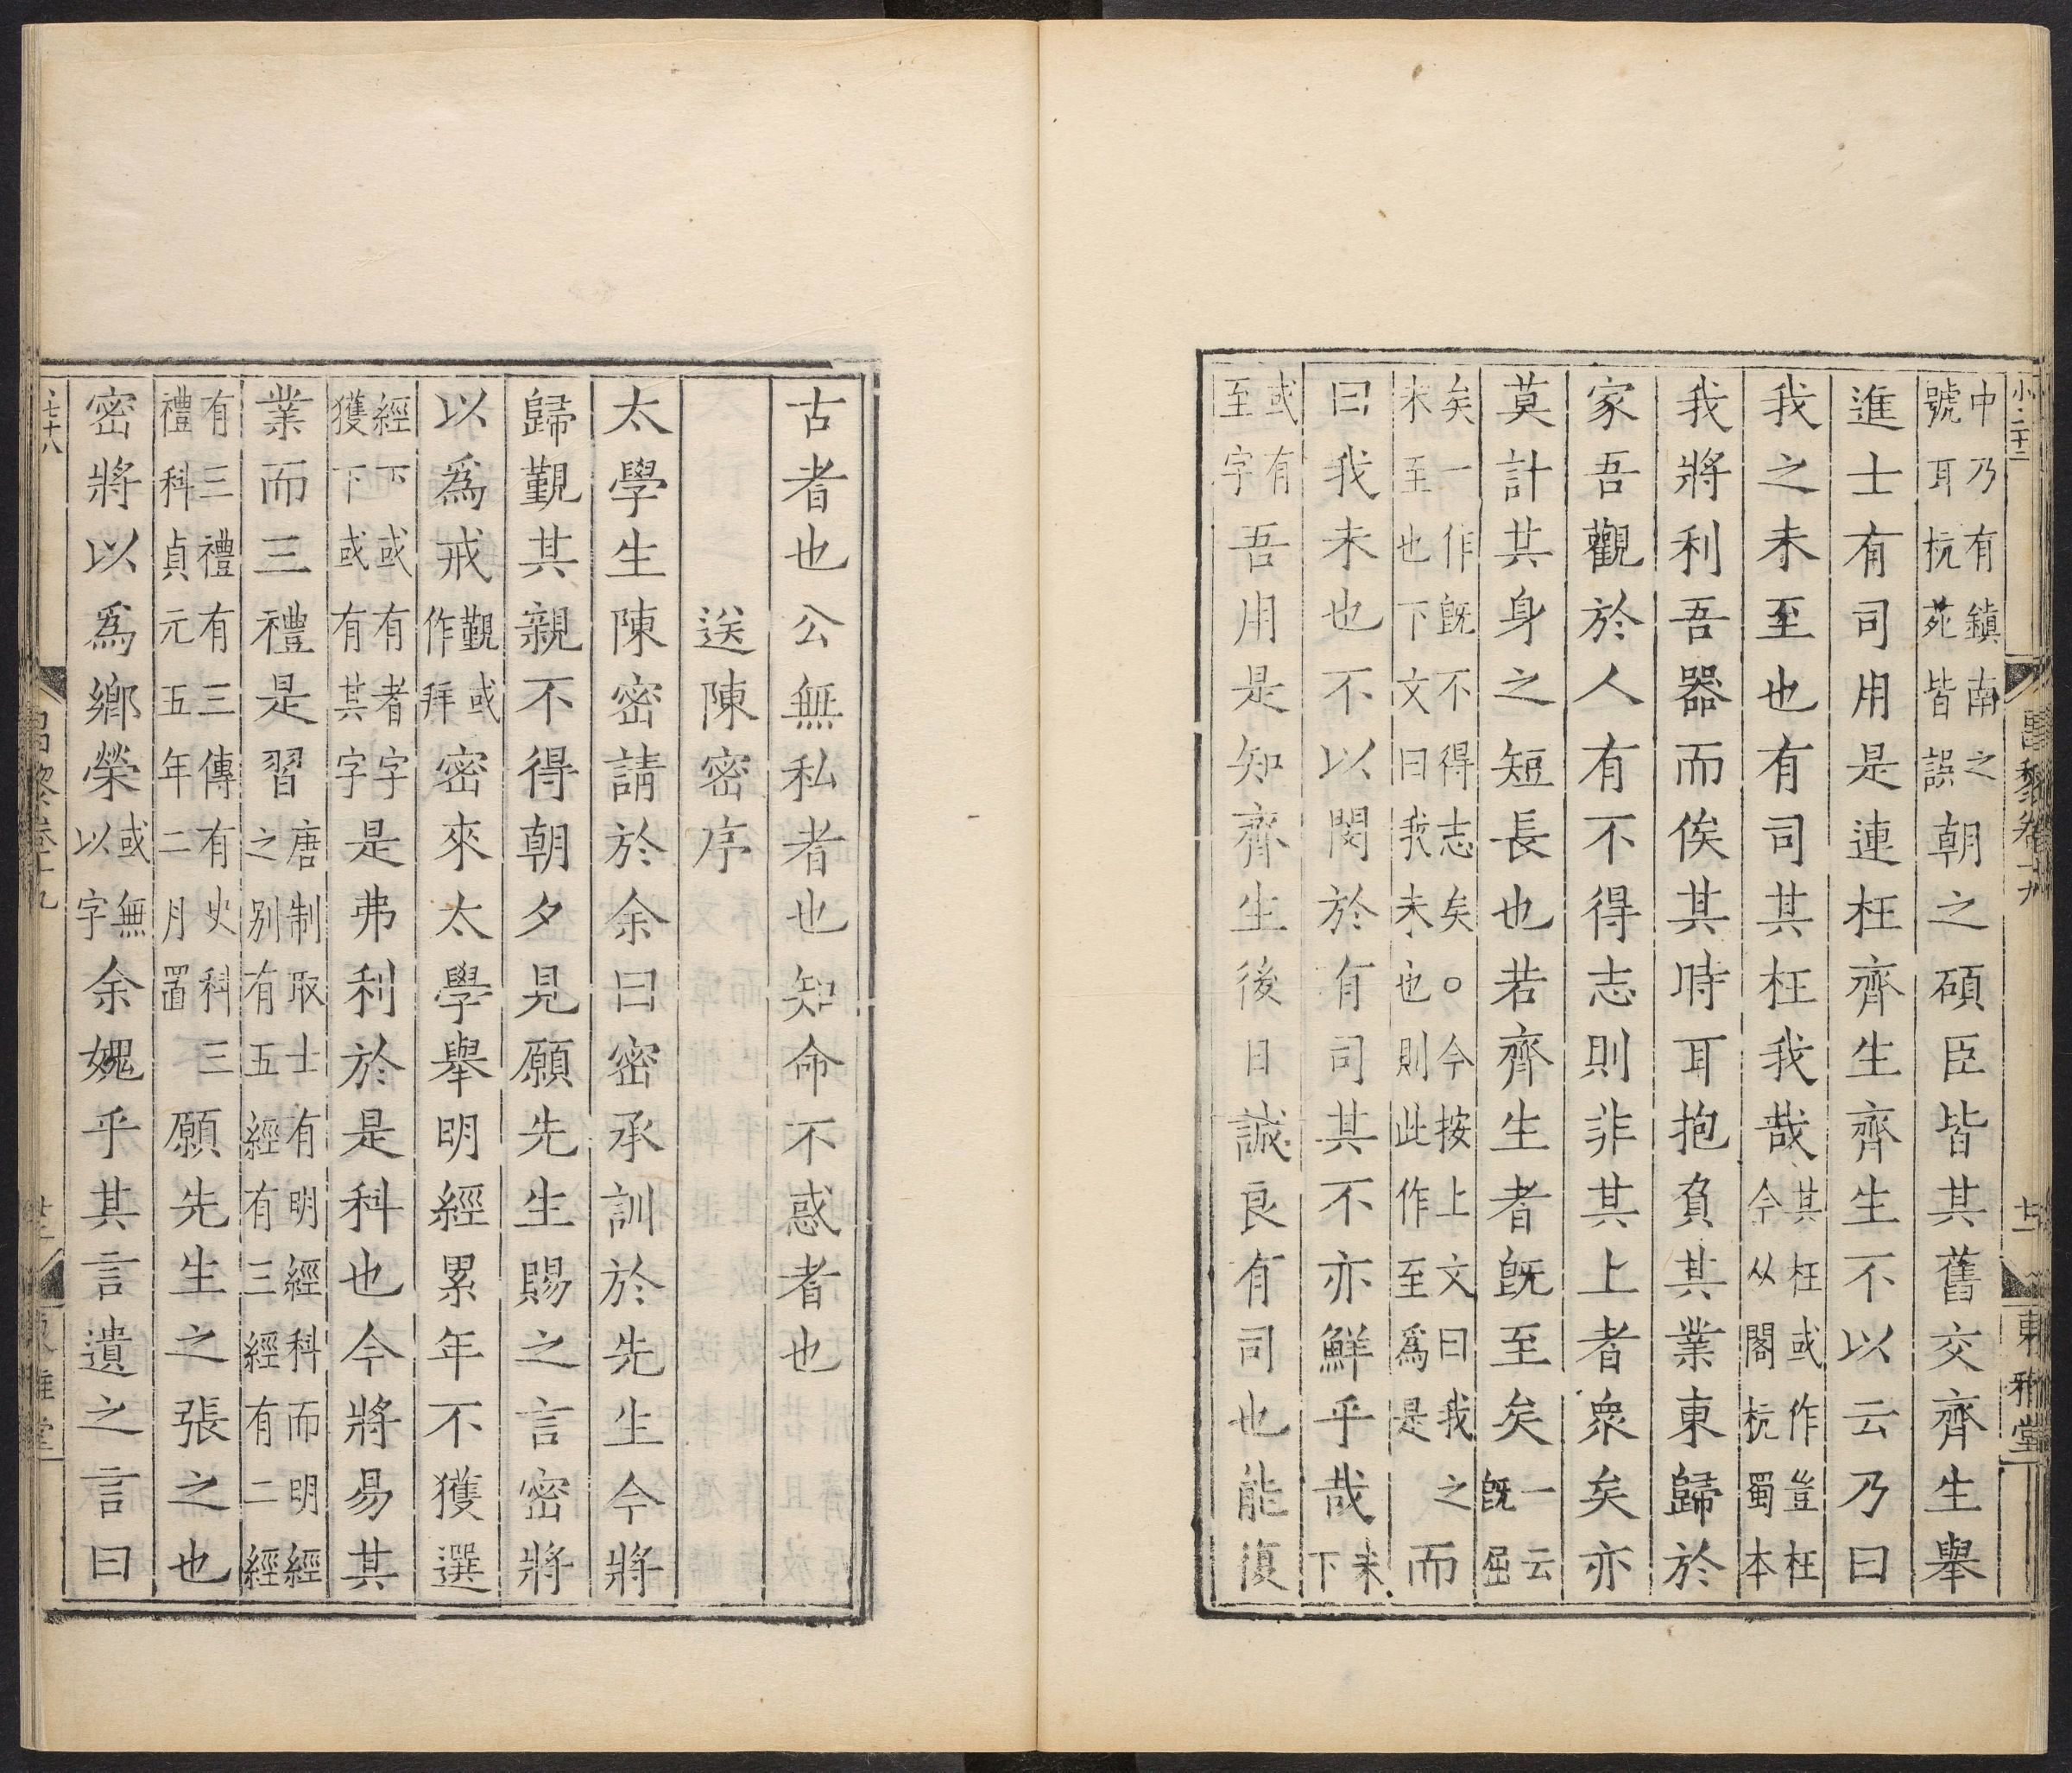 小二十二
昌黎卷十九
東雅堂
中乃有鎮南之
號耳杭苑皆誤
朝之碩臣皆其舊交齊生舉
進士有司用是連枉齊生齊生不以云乃曰
我之未至也有司其枉我哉
其枉或作豈枉
今从閣杭蜀本
我將利吾器而俟其時耳抱負其業東歸於
家吾觀於人有不得志則非其上者衆矣亦
莫計其身之短長也若齊生者旣至矣
一云
旣屈
矣一作旣不得志矣○今按上文曰我之
未至也下文曰我未也則此作至爲是
而
曰我未也不以閔於有司其不亦鮮乎哉
未
下
或有有
至字
吾用是知齊生後日誠良有司也能復
古者也公無私者也知命不惑者也
送陳密序
太學生陳密請於余曰密承訓於先生今將
歸覲其親不得朝夕見願先生賜之言密將
以爲戒
覲或
作拜
密來太學舉明經累年不獲選
經下或有者字
獲下或有其字
是弗利於是科也今將易其
業而三禮是習
唐制取士有明經科而明經
之别有五經有三經有二經
有三禮有三傳有史科三
禮科貞元五年二月置
願先生之張之也
密將以爲鄉榮
或無
以字
余媿乎其言遺之言曰
七十八
昌黎卷十九
東雅堂